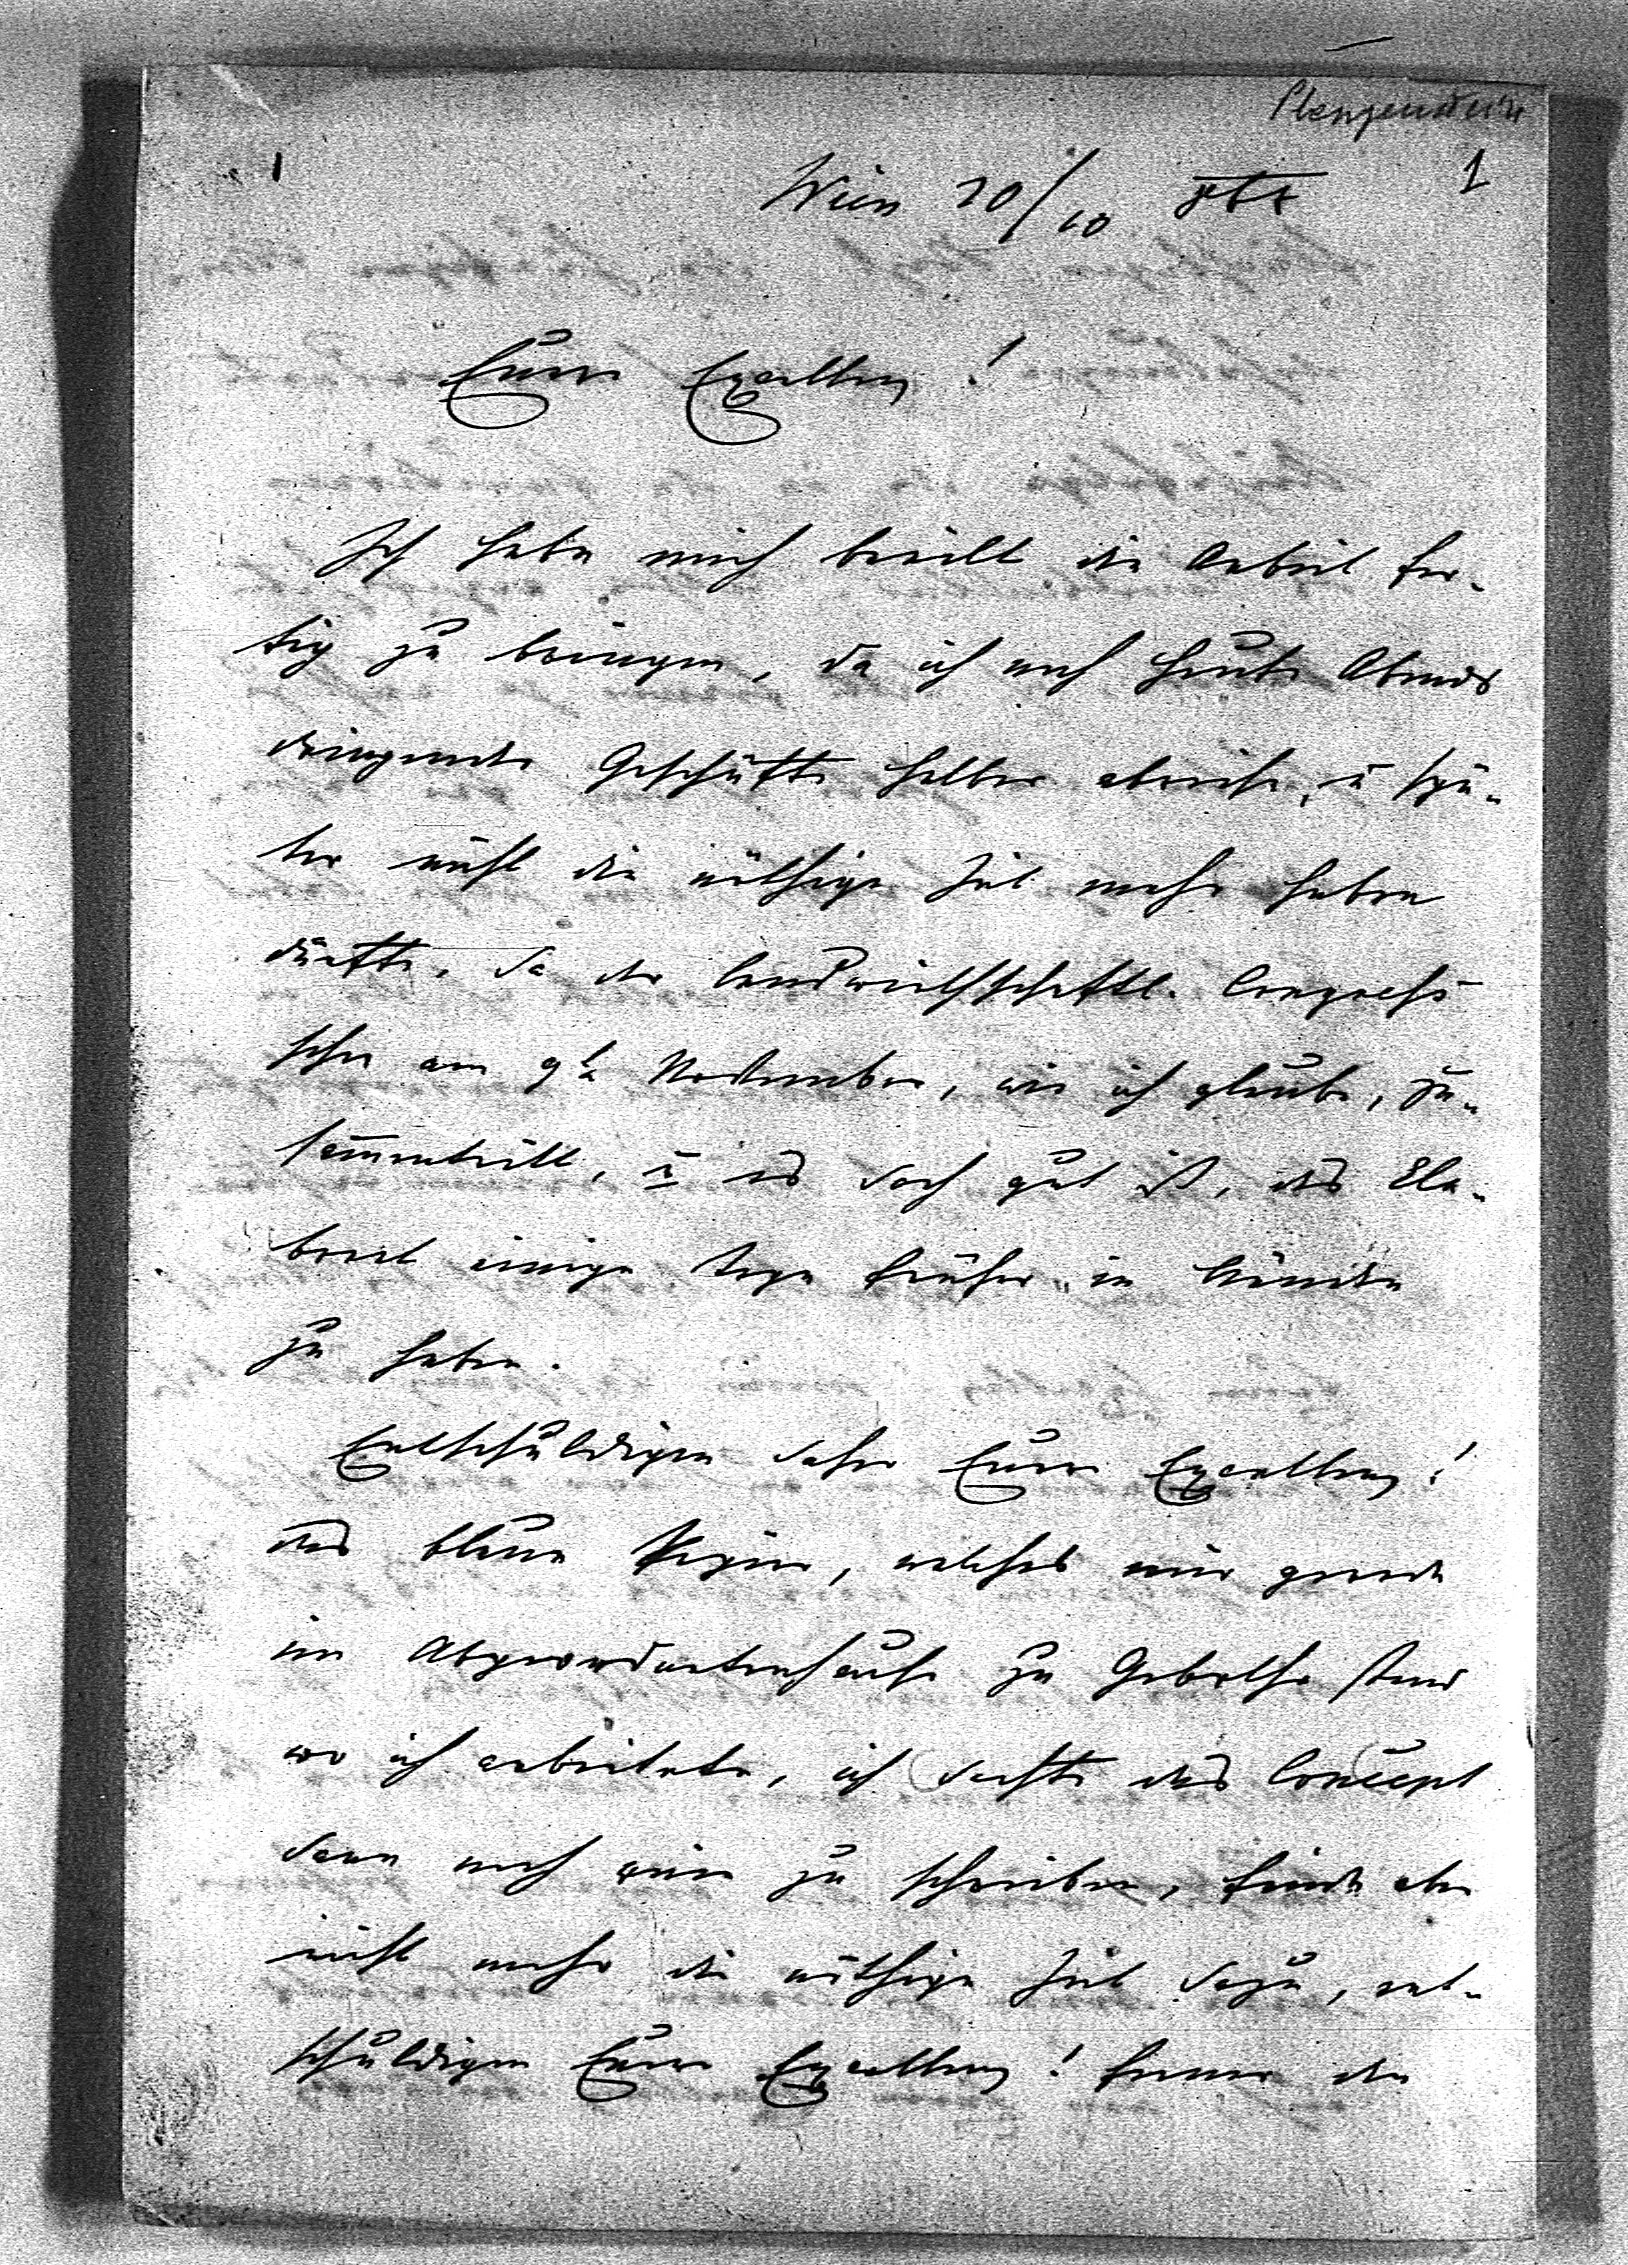 1
Wien 20/10 868
Eure Excellenz!
Ich habe mich beeilt die Arbeit fer-
tig zu bringen, da ich noch heute Abends
dringende Geschäfte halber abreise, u spä-
ter nicht die nöthige Zeit mehr haben
dürfte, da der landwirthschaftl. Congreß
schon am 9t November, wie ich glaube, zu-
sam̄entritt, u es doch gut ist, das Ela-
borat einige Tage früher in Händen
zu haben.
Entschuldigen daher Eure Excellenz!
das blaue Papier, welches mir gerade
im Abgeordnetenhause zu Gebothe stand
wo ich arbeitete, ich dachte das Concept
dann noch rein zu schreiben, finde aber
nicht mehr die nöthige Zeit dazu, ent-
schuldigen Eure Excellenz! ferner die